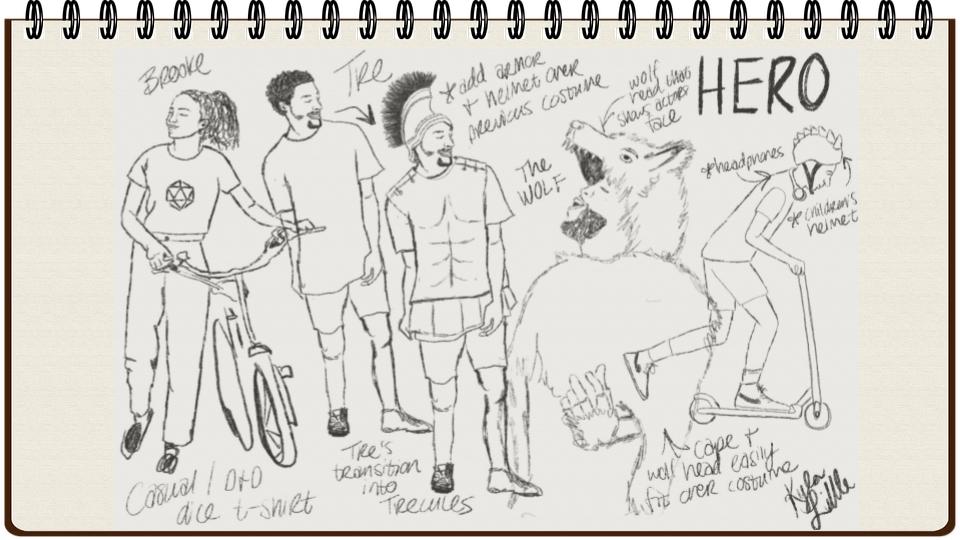 Brooke
Tre
*add armor
+ helmet over
previous costume
wolf
head that
shows actors
face
HERO
The
WOLF
*headphones
*children's
helmet
Casual / D+D
dice t-shirt
Tre's
transition
into
Trecules
cape +
wolf head easily
fit over costume
Kylor
Little